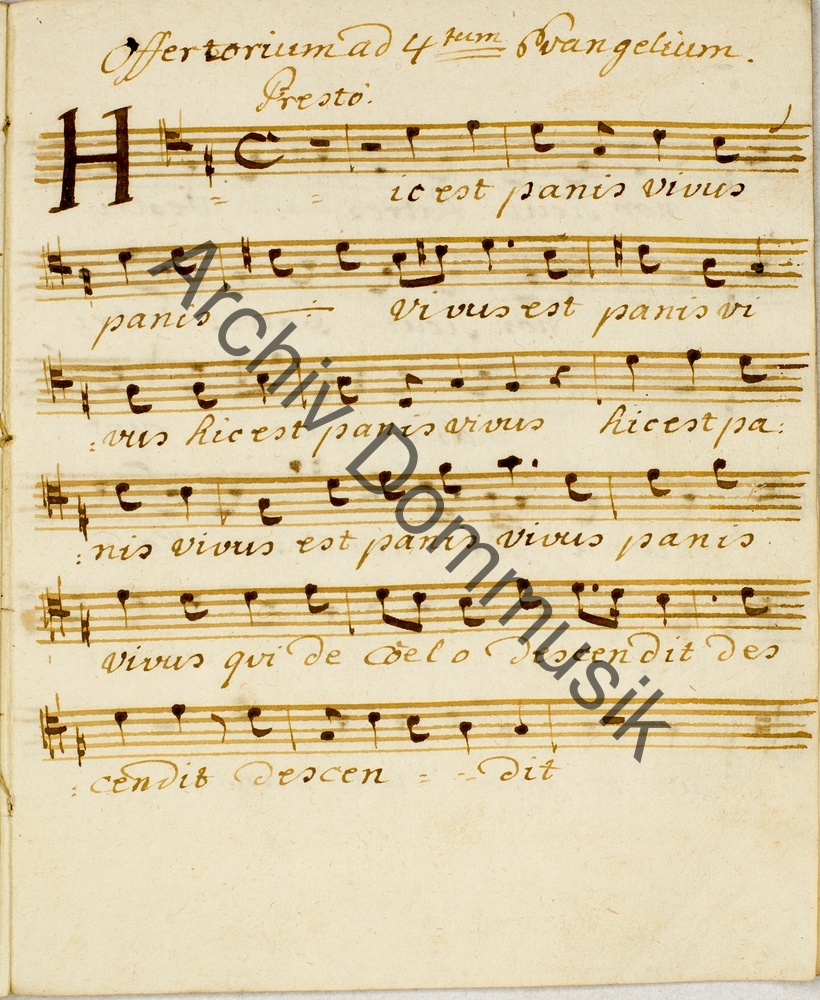 Offertorium ad 4tum Evangelium.
Presto.
Hic est panis vivus
panis vivus est panis vi
:vus hic est panis vivus hic est pa:
:nis vivus est panis vivus panis
vivus qui de Coelo descendit des
:cendit descen = - - dit
Archiv Dommusik